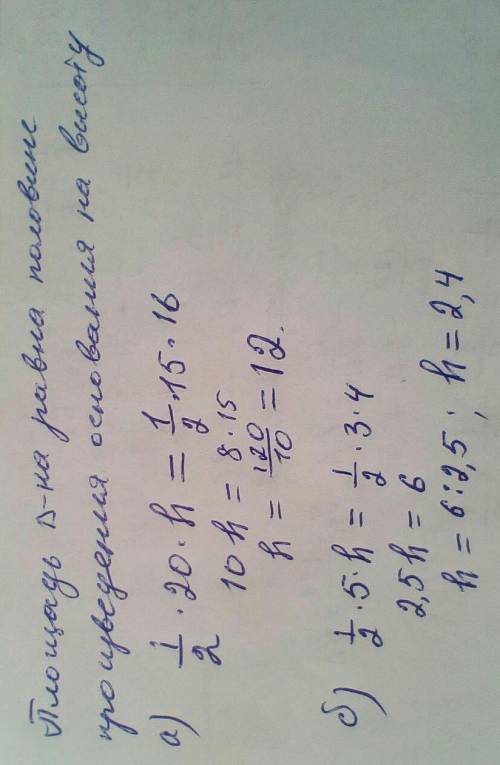 Площадь Δ-на равна половине
произведения основания на высоту
а) 1/2 · 20 · h = 1/2 · 15 · 16
10 h = 8 · 15
h = 120/10 = 12.
б) 1/2 · 5 · h = 1/2 · 3 · 4
2,5 h = 6
h = 6 : 2,5 ; h = 2,4